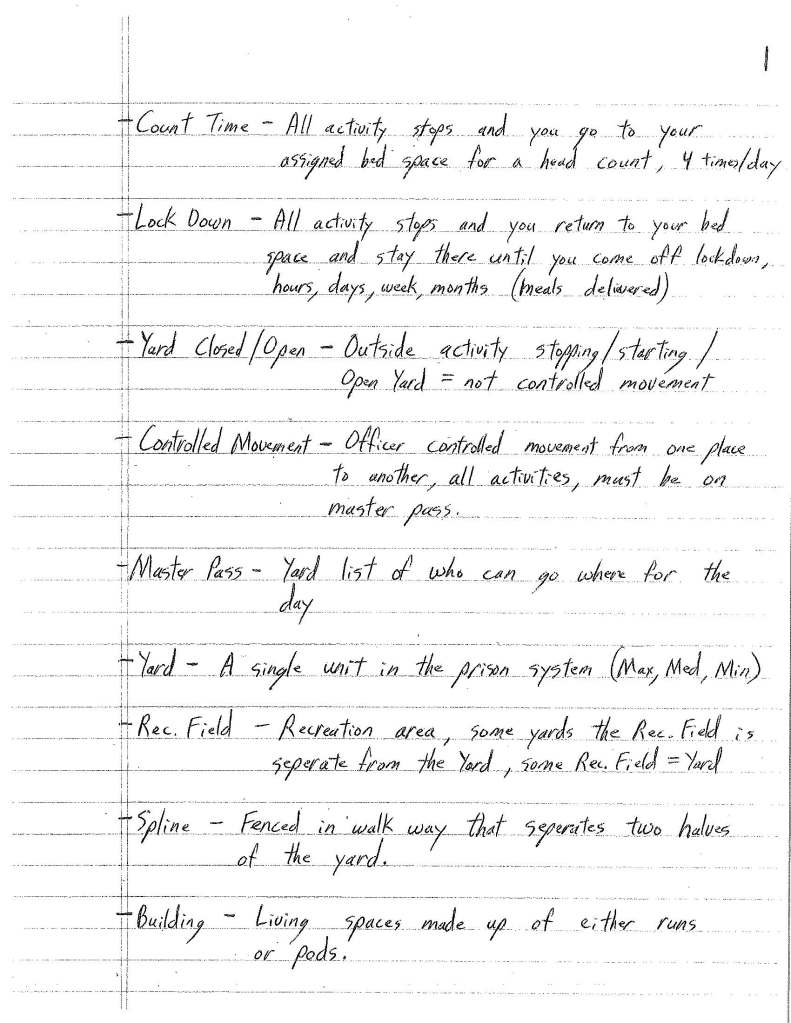 1
- Count Time - All activity stops and you go to your
assigned bed space for a head count, 4 times/day
- Lock Down - All activity stops and you return to your bed
space and stay there until you come off lockdown,
hours, days, week, months (meals delivered)
- Yard Closed/Open - Outside activity stopping/starting/
Open Yard = not controlled movement
- Controlled Movement - Officer controlled movement from one place
to another, all activities, must be on
master pass.
- Master Pass - Yard list of who can go where for the
day
- Yard - A single unit in the prison system (Max, Med, Min)
- Rec. Field - Recreation area, some yards the Rec. Field is
seperate from the Yard, some Rec. Field = Yard
- Spline - Fenced in walk way that seperates two halves
of the yard.
- Building - Living spaces made up of either runs
or pods.